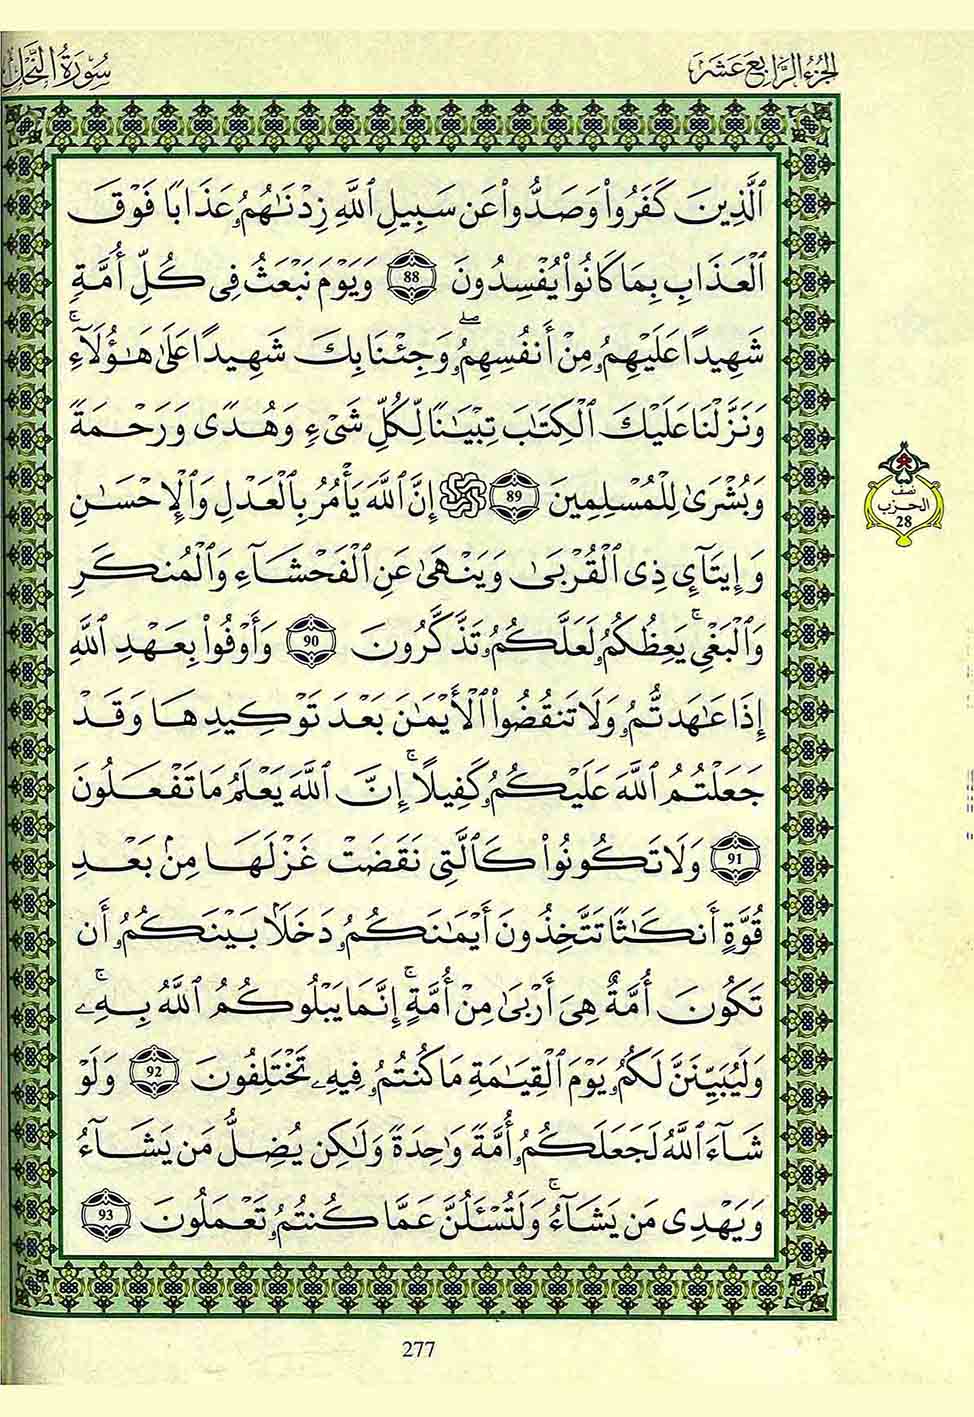 الجزء الرابع عشر
سورة النحل
ٱلَّذِينَ كَفَرُواْ وَصَدُّواْ عَن سَبِيلِ ٱللَّهِ زِدْنَٰهُمُۥ عَذَابًا فَوْقَ
ٱلْعَذَابِ بِمَا كَانُواْ يُفْسِدُونَ 88 وَيَوْمَ نَبْعَثُ فِى كُلِّ أُمَّةٍ
شَهِيدًا عَلَيْهِمُۥ مِنْ أَنفُسِهِمُۥۖ وَجِئْنَا بِكَ شَهِيدًا عَلَىٰ هَٰٓؤُلَآءِۚ
وَنَزَّلْنَا عَلَيْكَ ٱلْكِتَٰبَ تِبْيَٰنًا لِّكُلِّ شَىْءٍ وَهُدًى وَرَحْمَةً
وَبُشْرَىٰ لِلْمُسْلِمِينَ 89 ۞ إِنَّ ٱللَّهَ يَأْمُرُ بِٱلْعَدْلِ وَٱلْإِحْسَٰنِ
وَإِيتَآئِ ذِى ٱلْقُرْبَىٰ وَيَنْهَىٰ عَنِ ٱلْفَحْشَآءِ وَٱلْمُنكَرِ
وَٱلْبَغْىِۚ يَعِظُكُمُۥ لَعَلَّكُمُۥ تَذَّكَّرُونَ 90 وَأَوْفُواْ بِعَهْدِ ٱللَّهِ
إِذَا عَٰهَدتُّمُۥ وَلَا تَنقُضُواْ ٱلْأَيْمَٰنَ بَعْدَ تَوْكِيدِهَا وَقَدْ
جَعَلْتُمُ ٱللَّهَ عَلَيْكُمُۥ كَفِيلًاۚ إِنَّ ٱللَّهَ يَعْلَمُ مَا تَفْعَلُونَ
91 وَلَا تَكُونُواْ كَٱلَّتِى نَقَضَتْ غَزْلَهَا مِنۢ بَعْدِ
قُوَّةٍ أَنكَٰثًا تَتَّخِذُونَ أَيْمَٰنَكُمُۥ دَخَلَۢا بَيْنَكُمُۥ أَن
تَكُونَ أُمَّةٌ هِىَ أَرْبَىٰ مِنْ أُمَّةٍۚ إِنَّمَا يَبْلُوكُمُ ٱللَّهُ بِهِۦۚ
وَلَيُبَيِّنَنَّ لَكُمُۥ يَوْمَ ٱلْقِيَٰمَةِ مَا كُنتُمُۥ فِيهِۦ تَخْتَلِفُونَ 92 وَلَوْ
شَآءَ ٱللَّهُ لَجَعَلَكُمُۥ أُمَّةً وَٰحِدَةً وَلَٰكِن يُضِلُّ مَن يَشَآءُ
وَيَهْدِى مَن يَشَآءُۚ وَلَتُسْـَٔلُنَّ عَمَّا كُنتُمُۥ تَعْمَلُونَ 93
نصف
الحزب
28
277